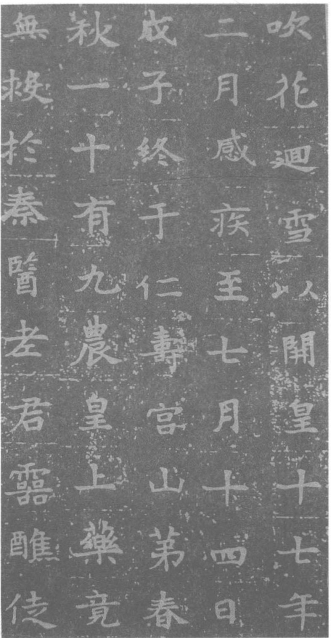 吹花迴雪以開皇十七年
二月感疾至七月十四日
戊子終于仁壽宮山苐春
秋一十有九農皇上藥竟
無救於秦醫老君靈醮徒